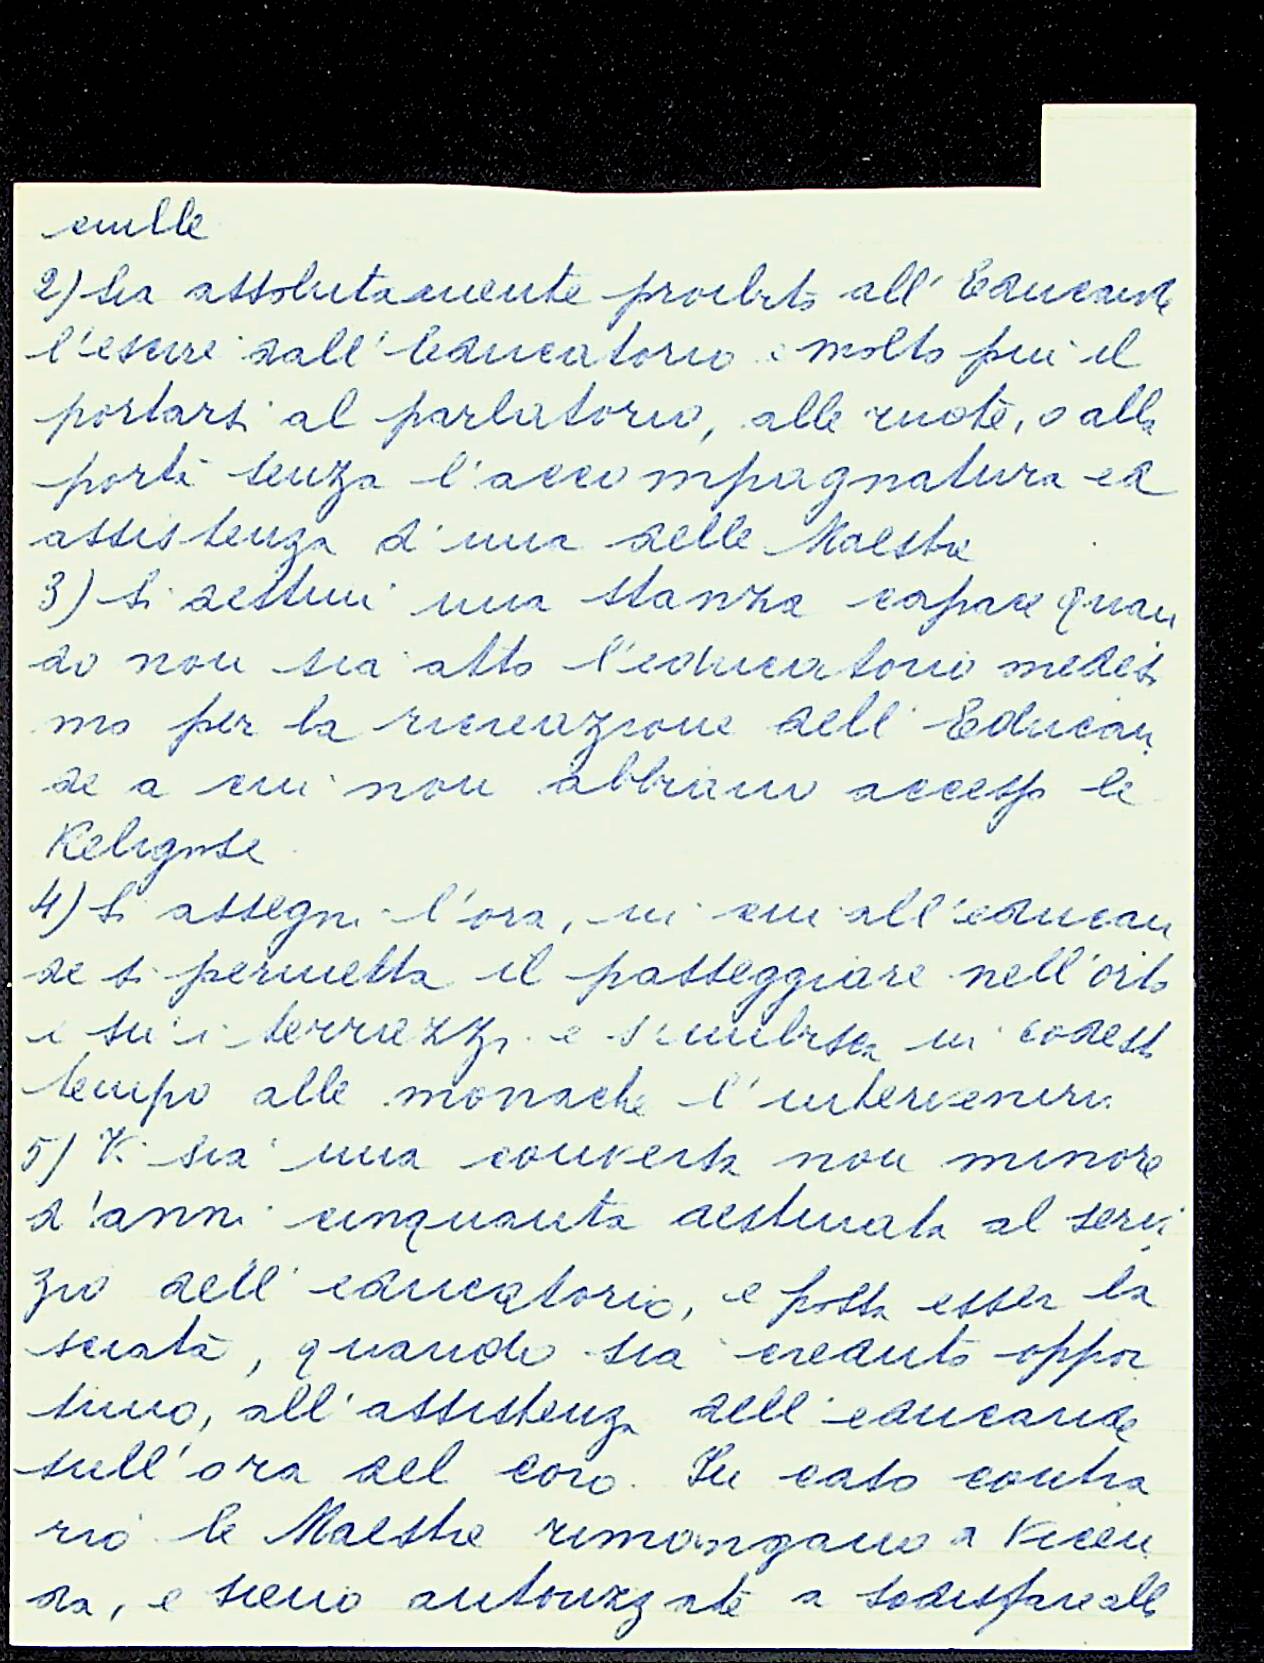 cielle
2) Sia assolutamente proibito all'Educande
l'escire dall'Educatorio e molto più il
portarsi al parlatorio, alle ruote, o alla
porta senza l'accompagnatura ed
assistenza d'una delle Maestre
3) Si destini una stanza capace quan
do non sia atto l'educatorio medesi
mo per la ricreazione dell'Educan
de a cui non abbiano accesso le
Religiose
4) Si assegni l'ora, in cui all'educan
de si permetta il passeggiare nell'orto
e su i terrazzi e s'inibisca in codesto
tempo alle monache l'intervenirvi
5) Vi sia una conversa non minore
d'anni cinquanta destinata al servi
zio dell'educatorio, e possa esser la
sciata, quando sia creduto oppor
tuno, all'assistenza dell'educande
sull'ora del coro. In caso contra
rio le Maestre rimangano a vicen
da, e sieno autorizzate a sodisfare alla